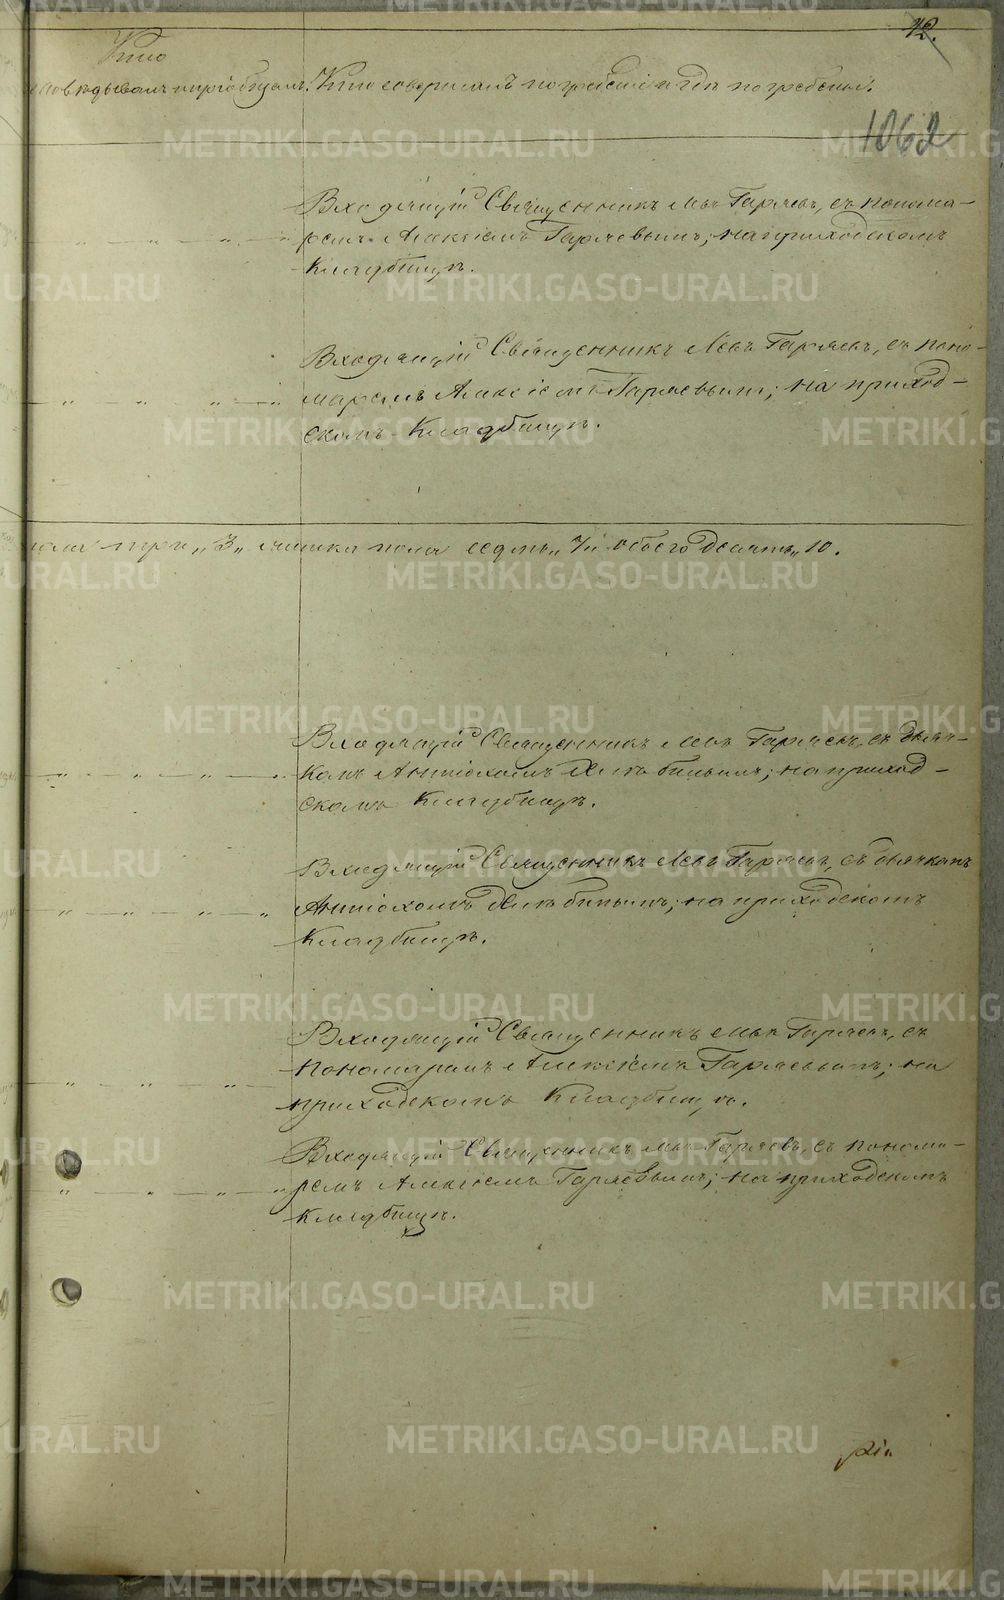 12.
1062
Кто
исповѣдывалъ и пріобщалъ. Кто совершалъ погребеніе и гдѣ погребены.
Входящій Священникъ Левъ Гаряевъ, съ понома-
ремъ Алексіемъ Гаряевымъ; на приходскомъ
Кладбищѣ.
Входящій Священникъ Левъ Гаряевъ, съ поно-
маремъ Алексіемъ Гаряевымъ; на приход-
скомъ Кладбищѣ.
пола три „3„ женска пола седмь „7„ обоего десять „10.
Входящій Священникъ Левъ Гаряевъ, съ дьяч-
комъ Антіохомъ; на приход-
скомъ Кладбищѣ.
Входящій Священникъ Левъ Гаряевъ, съ дьячкомъ
Антіохомъ; на приходскомъ
Кладбищѣ.
Входящій Священникъ Левъ Гаряевъ, съ
пономаремъ Алексіемъ Гаряевымъ; на
приходскомъ Кладбищѣ.
Входящій Священникъ Левъ Гаряевъ, съ понома-
ремъ Алексіемъ Гаряевымъ; на приходскомъ
Кладбищѣ.
METRIKI.GASO-URAL.RU